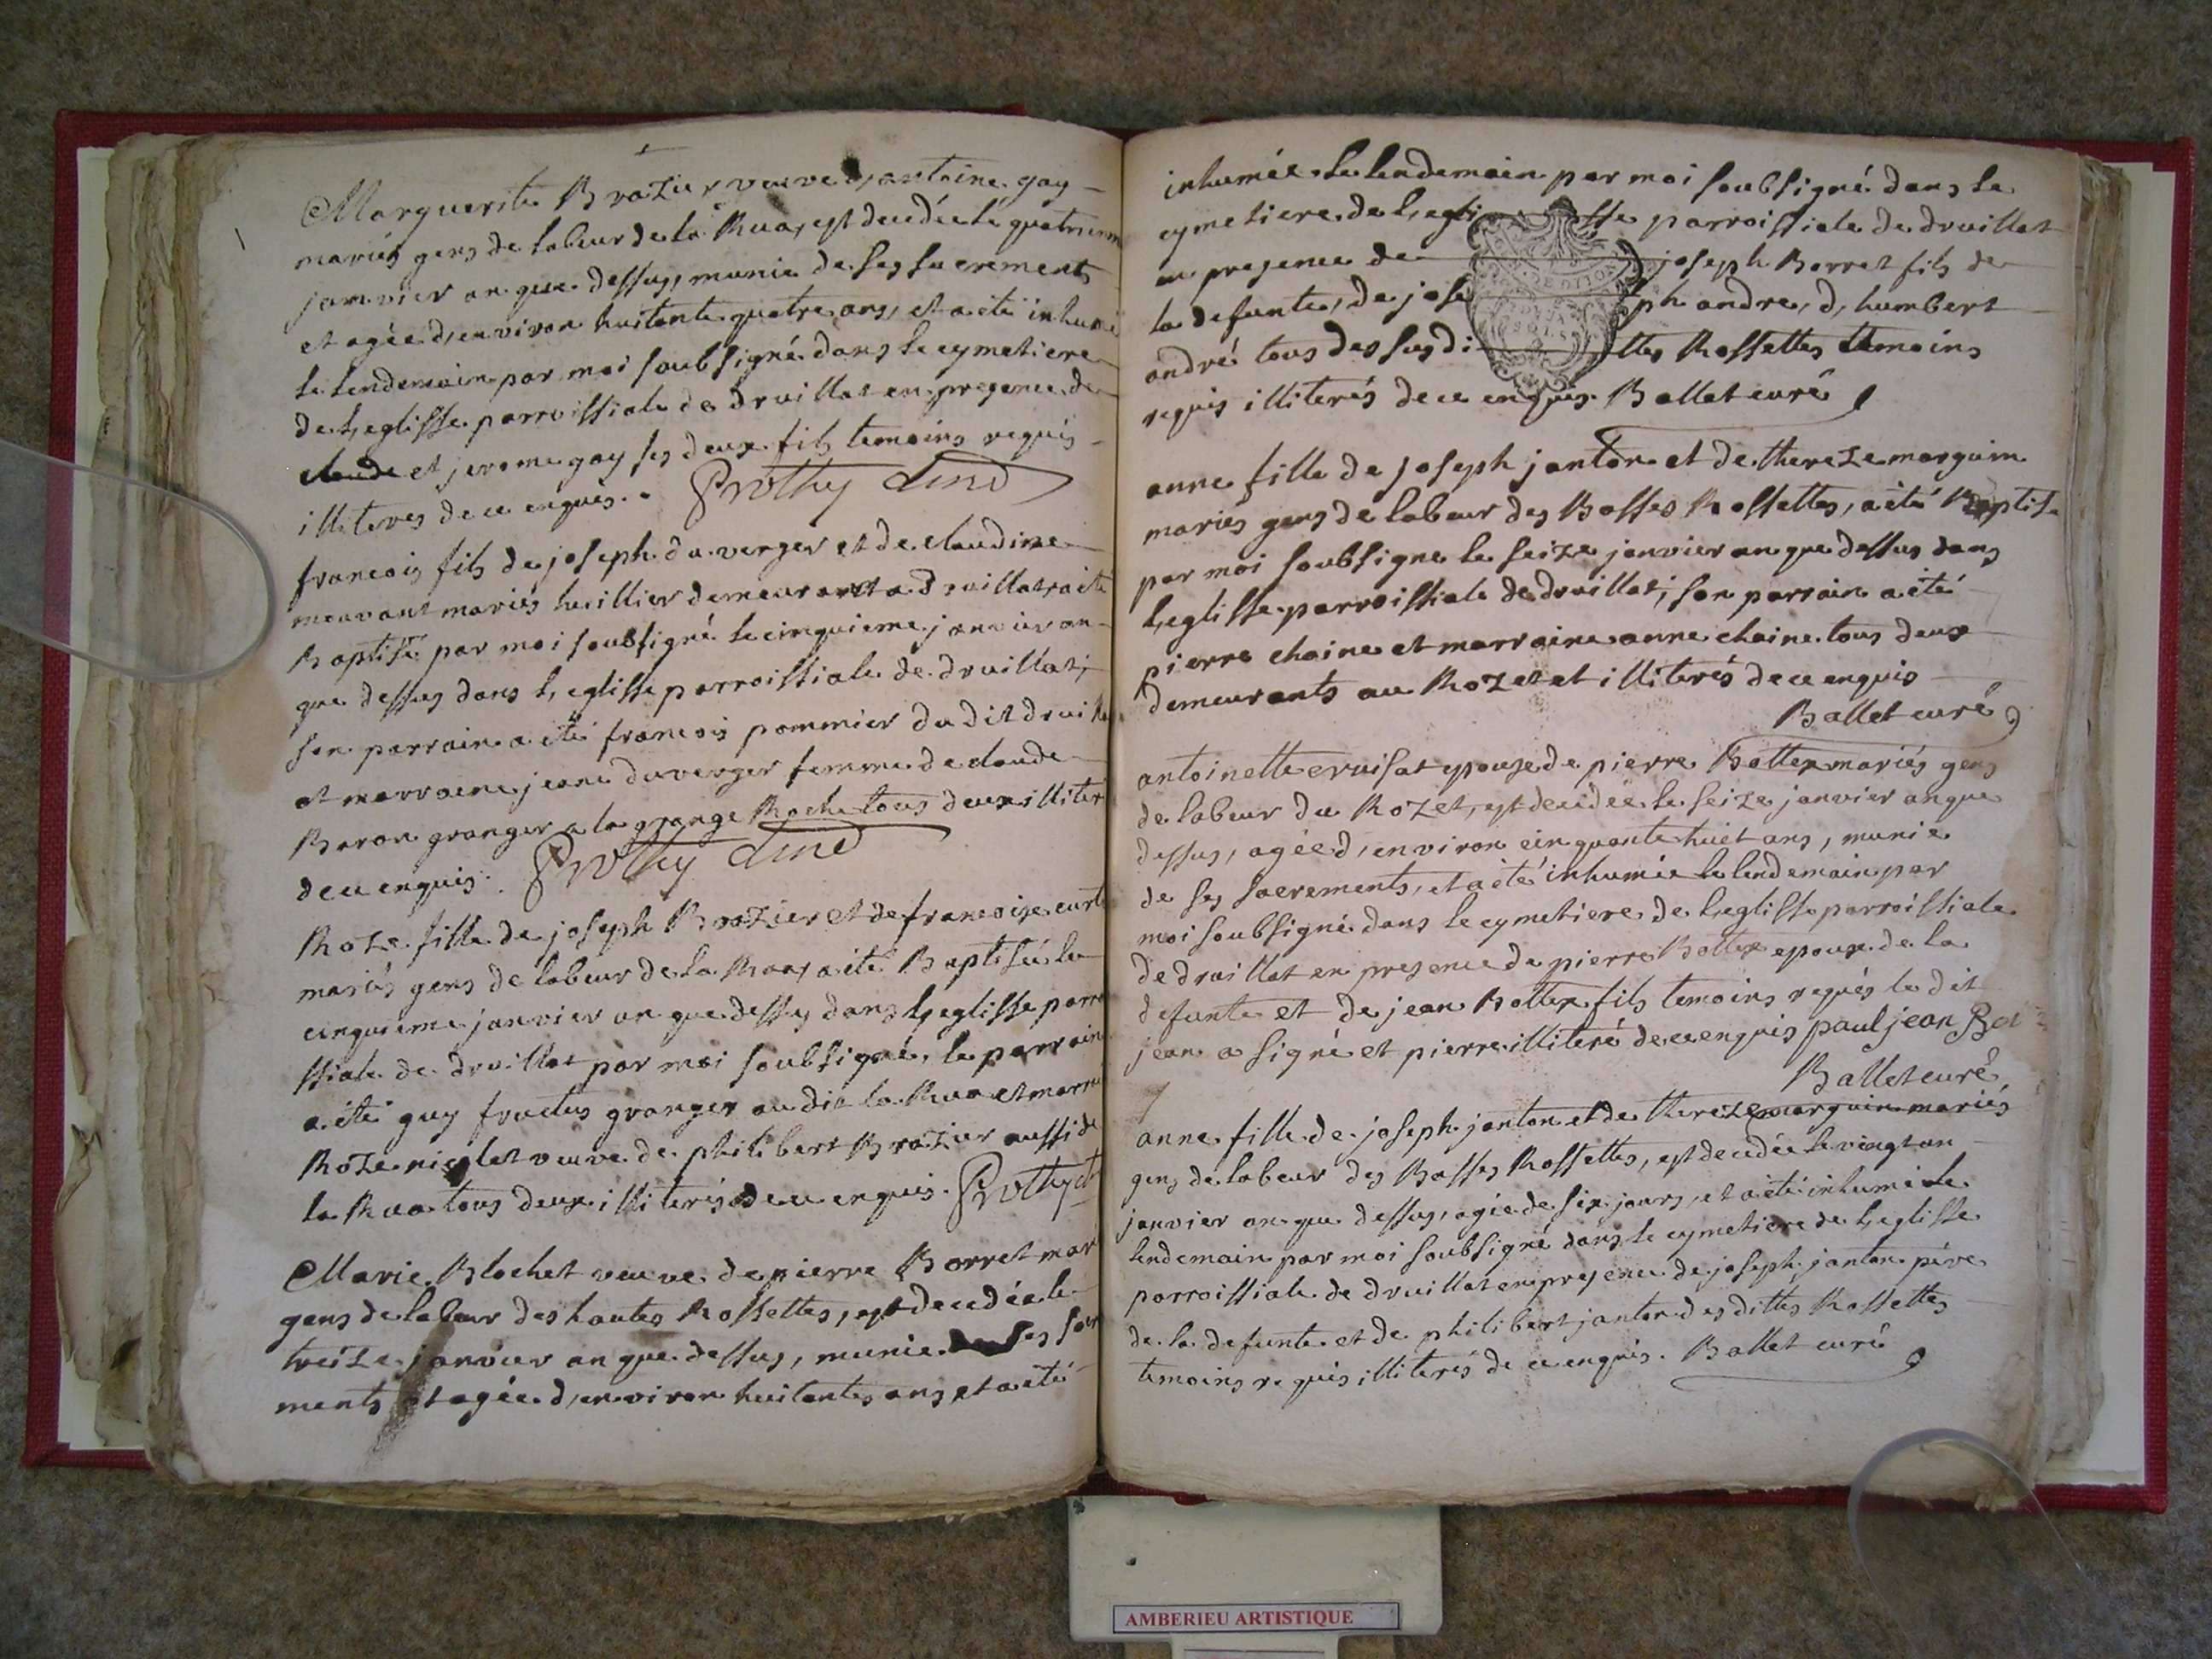 Marguerite Brazier veuve d'antoine gay
mariés gens de labeur de la Rua, est decedée le quatrieme
janvier an que dessus, munie de ses sacrements
et agée d'environ huitante quatre ans, et a eté inhumé
le lendemain par moi soubsigné dans le cymetiere
de l'eglisse parroissiale de druillat en presence de
claude et jerome gay ses deux fils temoins requis
illiteres de ce enquis. Prothy
francois fils de joseph du verger et de claudine
mouvant mariés huillier demeurant a druillat, a eté
Baptisé par moi soubsigné le cinquieme janvier an
que dessus dans l'eglisse parroissiale de druillat,
son parrain a eté francois pommier du dit druillat
et marraine jeane duverger femme de claude
Baron granger a la grange Roche tous deux illiter
de ce enquis. Prothy
Roze fille de joseph Brazier et de francoise curt
mariés gens de labeur de la Rua, a eté Baptisée le
cinquieme janvier an que dessus dans l'eglisse parroi
ssiale de druillat par moi soubsigné, le parrain
a eté guy fructus granger au dit la Rua et marrai
Roze nicolet veuve de philibert Brazier aussi de
la Rua tous deux illiterés de ce enquis. Prothy
Marie Blochet veuve de pierre Borret mar
gens de labeur des hautes Rossettes, est decedée le
treize janvier an que dessus, munie de ses sacr
ments et agée d'environ huitantes ans, et a eté
inhumée le lendemain par moi soubsigné dans le
cymetiere de l'eglisse parroissiale de druillat
en presence de joseph Borret fils de
la defunte, de joseph andre, d'humbert
andré tous des susdittes Rossettes temoins
requis illiterés de ce enquis. Ballet curé
anne fille de joseph janton et de thereze marguin
mariés gens de labeur des Basses Rossettes, a eté Baptise
par moi soubsigne le seize janvier an que dessus dans
l'eglisse parroissiale de druillat, son parrain a eté
pierre chaine et marraine anne chaine tous deux
demeurants au Rozet et illiterés de ce enquis
Ballet curé
antoinette cruisat epouse de pierre Bottex mariés gens
de labeur du Rozet, est decedée le seize janvier an que
dessus, agée d'environ cinquante huit ans, munie
de ses sacrements, et a eté inhumée le lendemain par
moi soubsigné dans le cymetiere de l'eglisse parroissiale
de druillat en presence de pierre Bottex epoux de la
defunte et de jean Bottex fils temoins requis le dit
jean a signé et pierre illiteré de ce enquis paul jean Bot
Ballet curé
anne fille de joseph janton et de thereze marguin mariés
gens de labeur des Basses Rossettes, est decedée le vingt un
janvier an que dessus, agée de six jours, et a eté inhumé le
lendemain par moi soubsigné dans le cymetiere de l'eglisse
parroissiale de druillat en presence de joseph janton pére
de la defunte et de philibert janton des dittes Rossettes
temoins requis illiterés de ce enquis. Ballet curé
AMBERIEU ARTISTIQUE